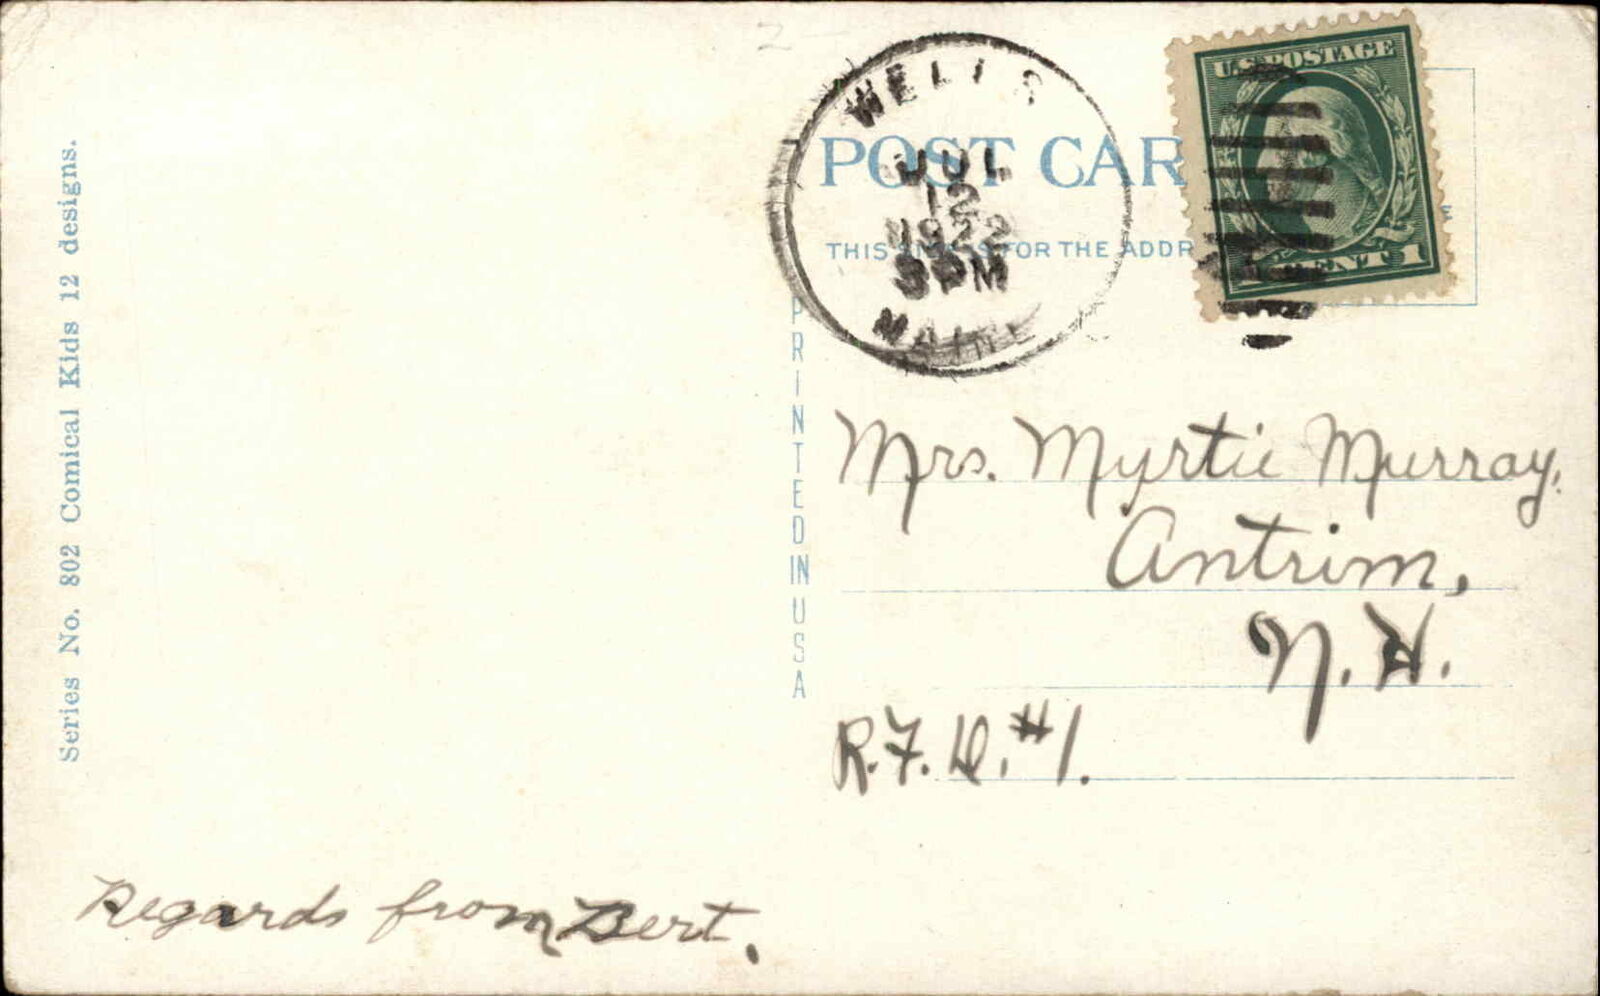 Series No. 802 Comical Kids 12 designs.
WELLS
JUL
12
1922
3PM
MAINE
U.S. POSTAGE
CENT 1
POST CAR
THIS SIDE IS FOR THE ADDR
PRINTED IN USA
Mrs. Myrtie Murray,
Antrim,
N. H.
R.F.D. #1.
Regards from Bert.